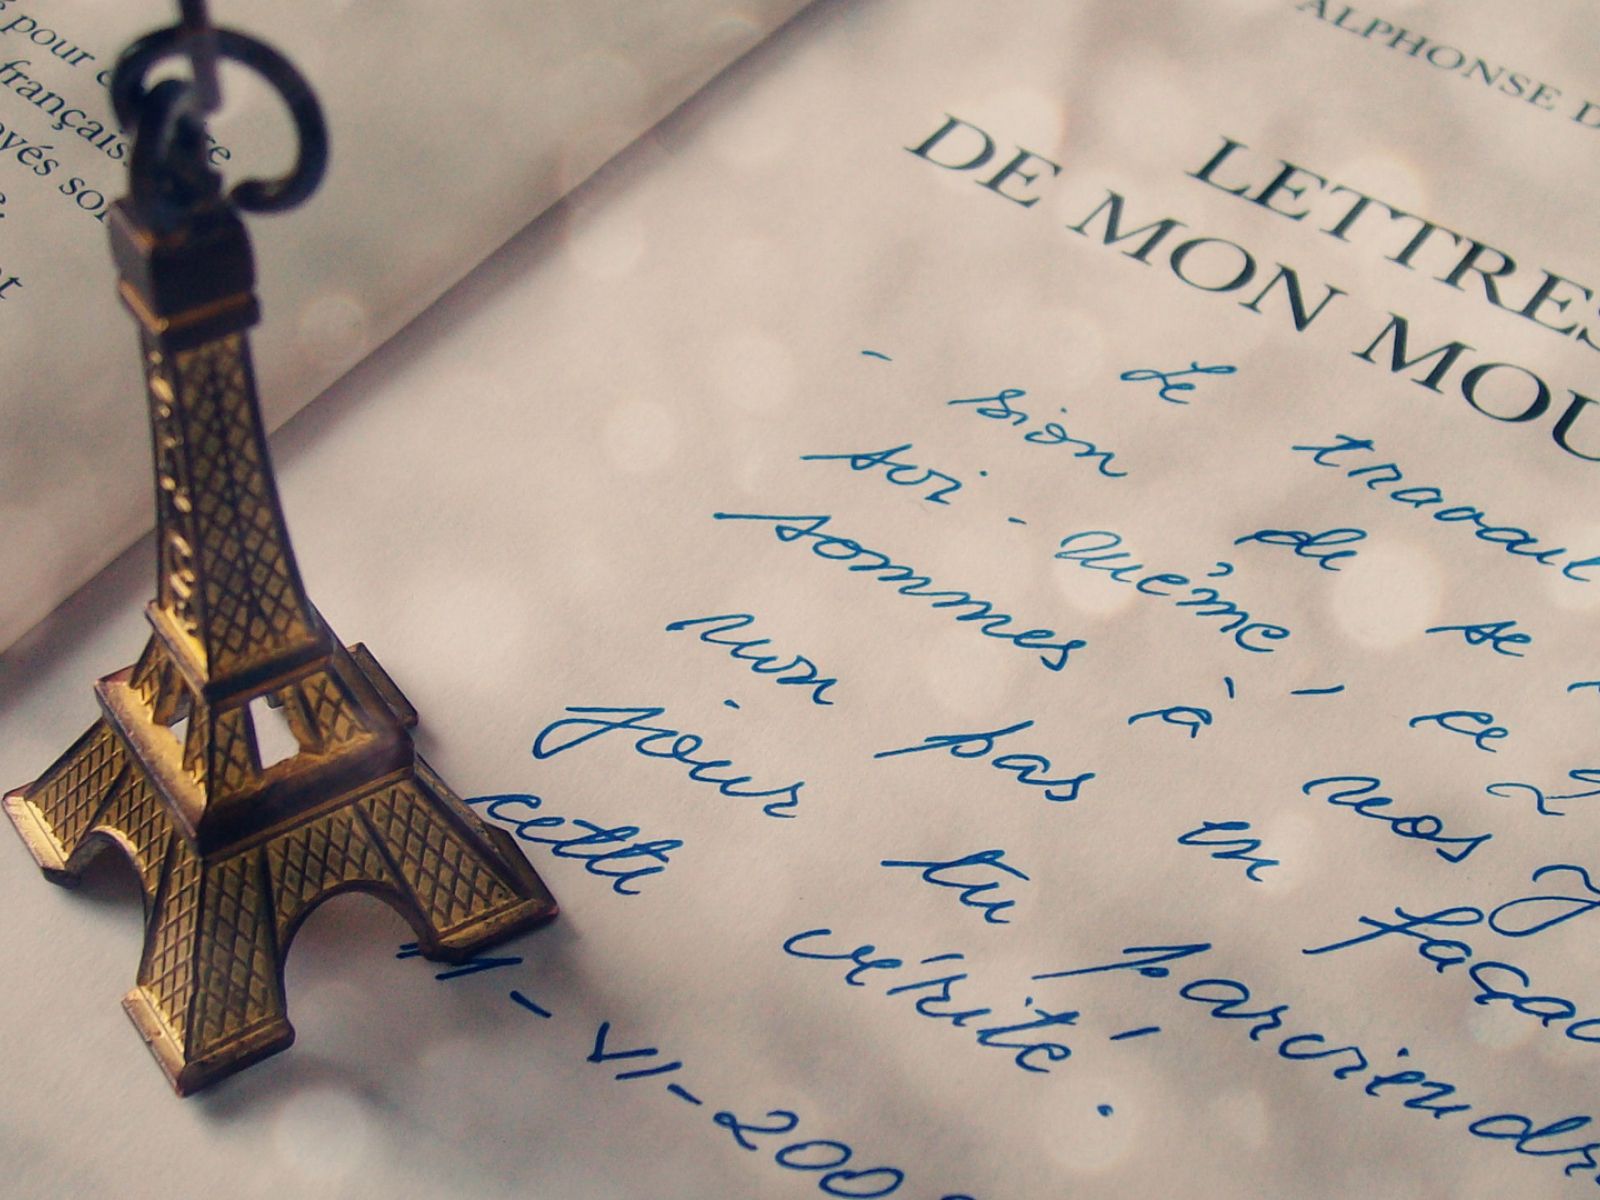 pour
français.
oyés
ALPHONSE D
LETTRES
DE MON MOU
Le travail
- sion de se
soi-même, ce
sommes à nos
non pas en façao
jour tu parviendr
cette vérité.
- VI - 200